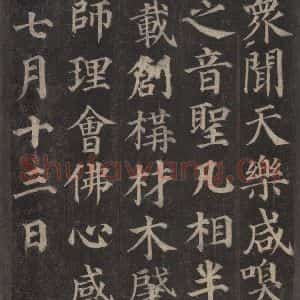 眾聞天樂咸嗅
之音聖凡相半
載創構材木肇
師理會佛心感
七月十三日
Shufawang.cn